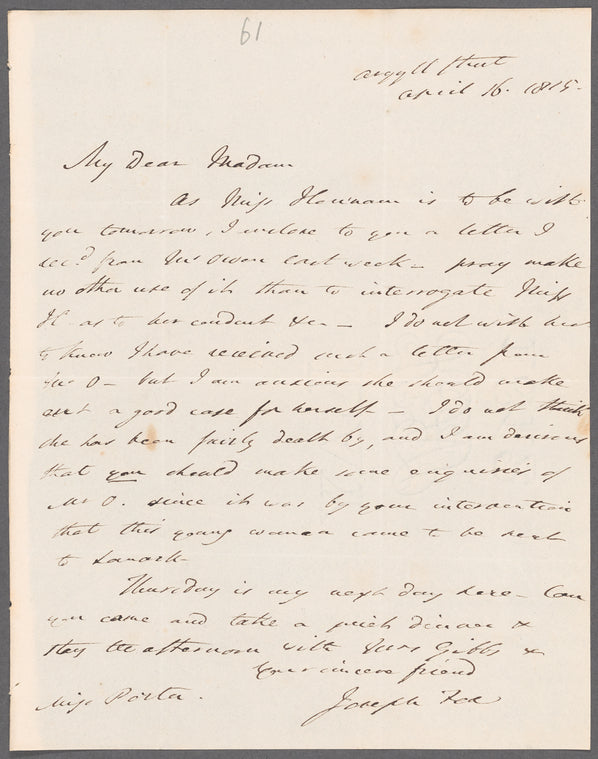 61
Argyll Street
April 16. 1815.
My Dear Madam
As Miss is to be with
you tomorrow, I inclose to you a letter I
recd. from Mr Owen last week - pray make
no other use of it than to interrogate Miss
H. as to her conduct &c - I do not wish her
to know I have received such a letter from
Mr O - but I am anxious she should make
out a good case for herself - I do not think
she has been fairly dealt by, and I am desirous
that you should make some enquiries of
Mr O. since it was by your intervention
that this young woman came to be sent
to Lanark -
Thursday is my next day here - Can
you come and take a dinner &
stay the afternoon with Mrs Gibbs &
Your sincere friend
Joseph Fox
Miss Porter.